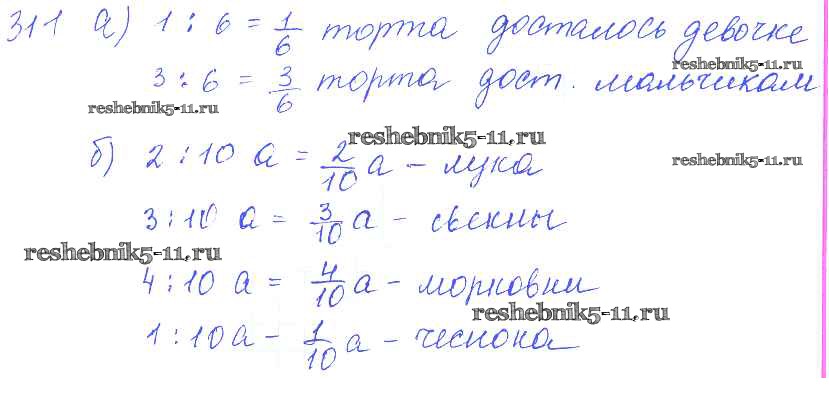 311 а) 1 : 6 = 1/6 торта досталось девочке
reshebnik5-11.ru
3 : 6 = 3/6 торта дост. мальчикам
reshebnik5-11.ru
reshebnik5-11.ru
б) 2 : 10 а = 2/10 а – лука
reshebnik5-11.ru
3 : 10 а = 3/10 а – свеклы
reshebnik5-11.ru
4 : 10 а = 4/10 а – морковки
reshebnik5-11.ru
1 : 10 а – 1/10 а – чеснока